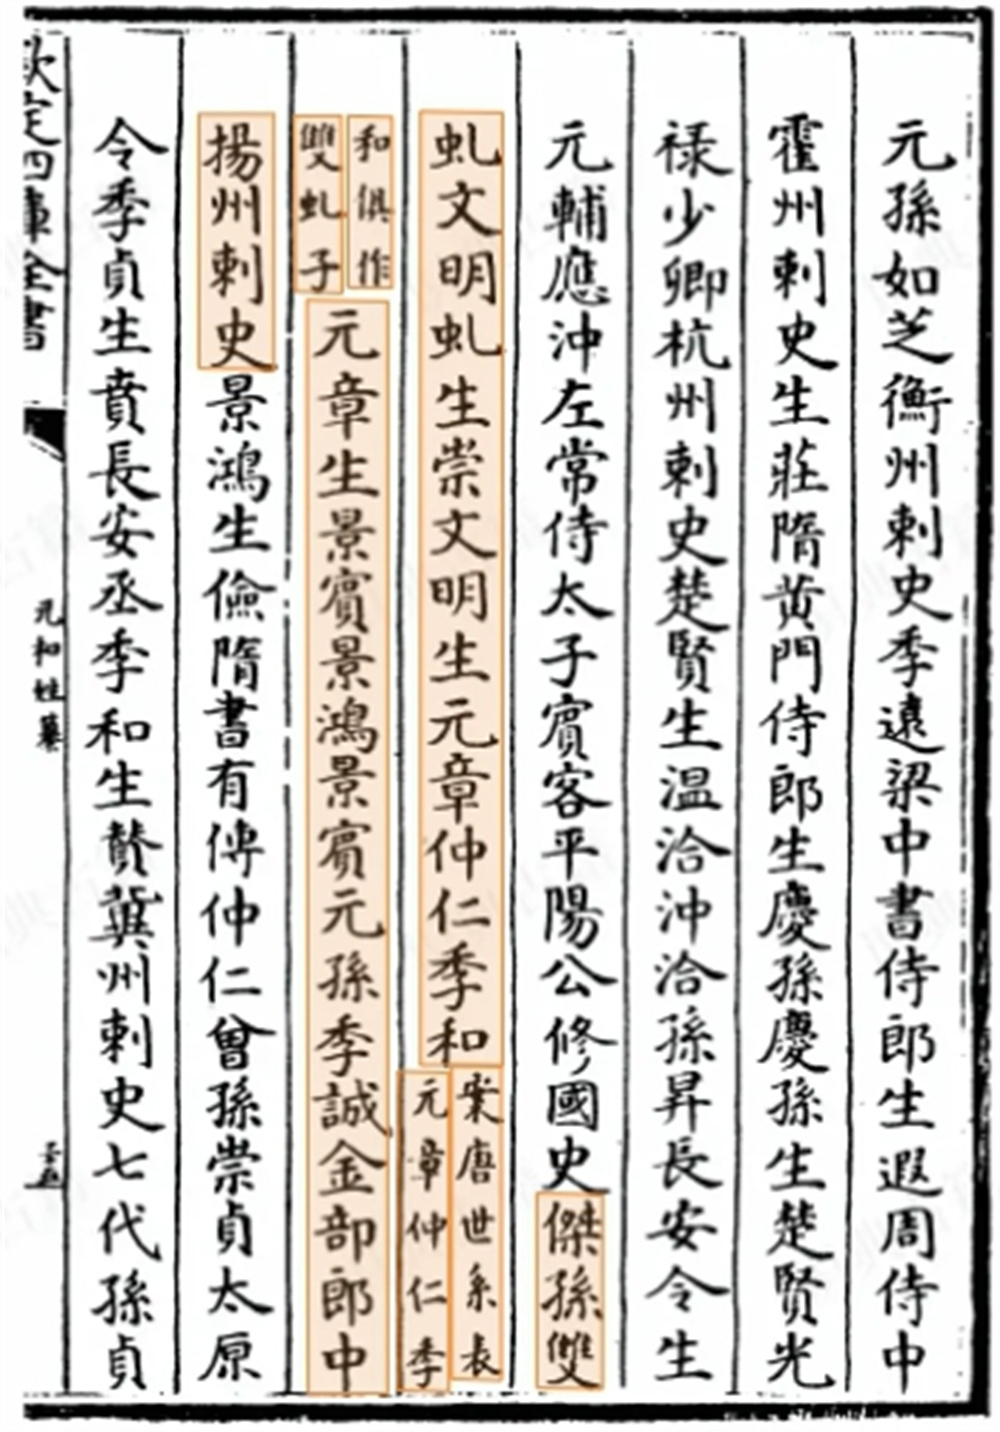 元孫如芝衡州刺史季遠梁中書侍郎生遐周侍中
霍州刺史生莊隋黄門侍郎生慶孫慶孫生楚賢光
禄少卿杭州刺史楚賢生温洽沖洽孫昇長安令生
元輔應沖左常侍太子賓客平陽公修國史傑孫雙
虬文明虬生崇文明生元章仲仁季和
案唐世系表
元章仲仁季
和俱作
雙虬子
元章生景賓景鴻景賓元孫季誠金部郎中
揚州刺史景鴻生儉隋書有傳仲仁曾孫崇貞太原
令季貞生賁長安丞季和生賛冀州刺史七代孫貞
欽定四庫全書
元和姓纂